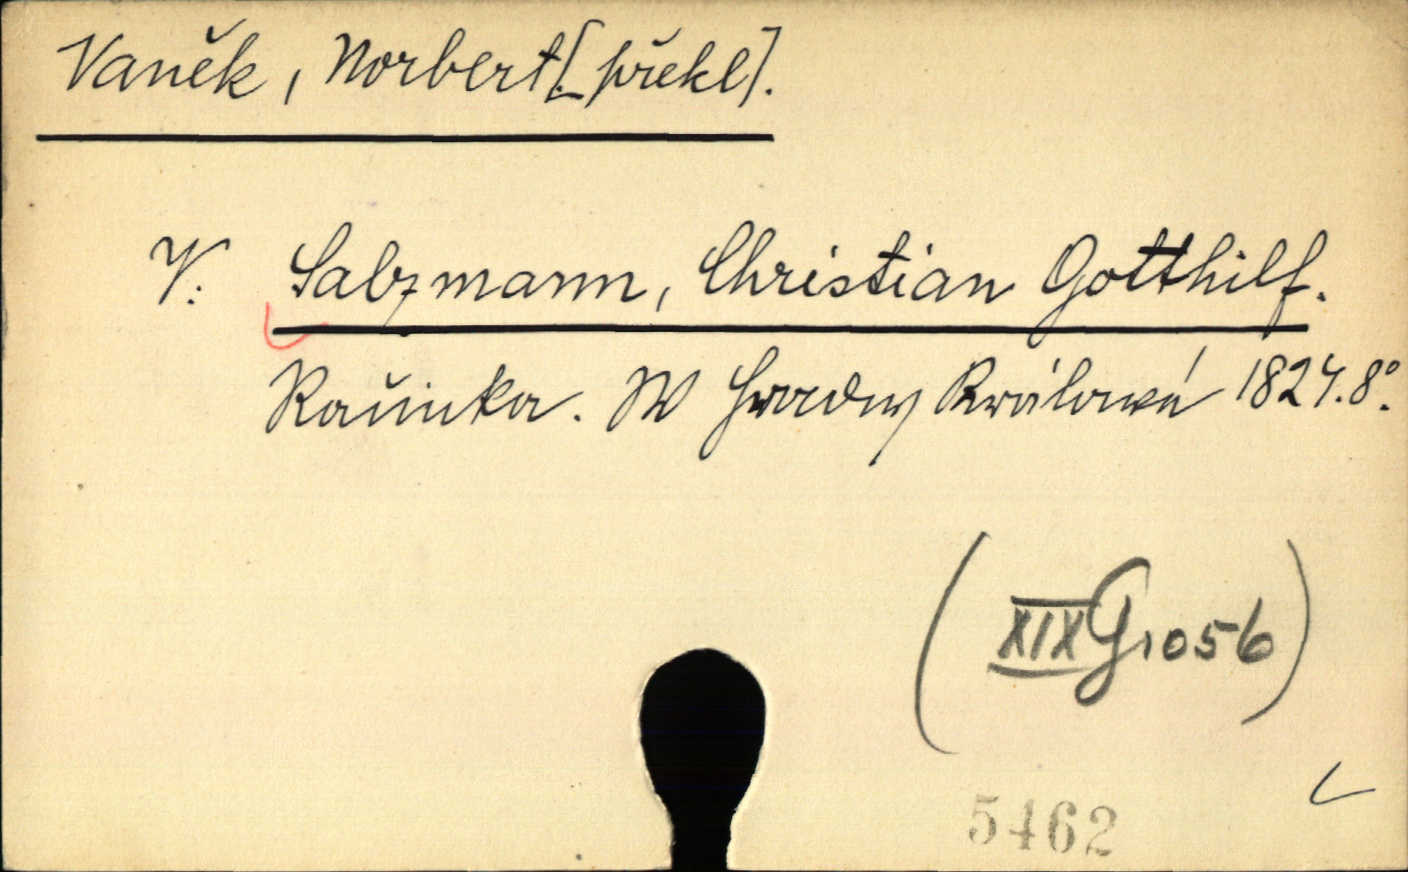 Vaněk, Norbert [překl].
V: Salzmann, Christian Gotthilf.
Kačinka. W Hradcy Králowé 1824. 8°.
(XIX G 1056)
5462